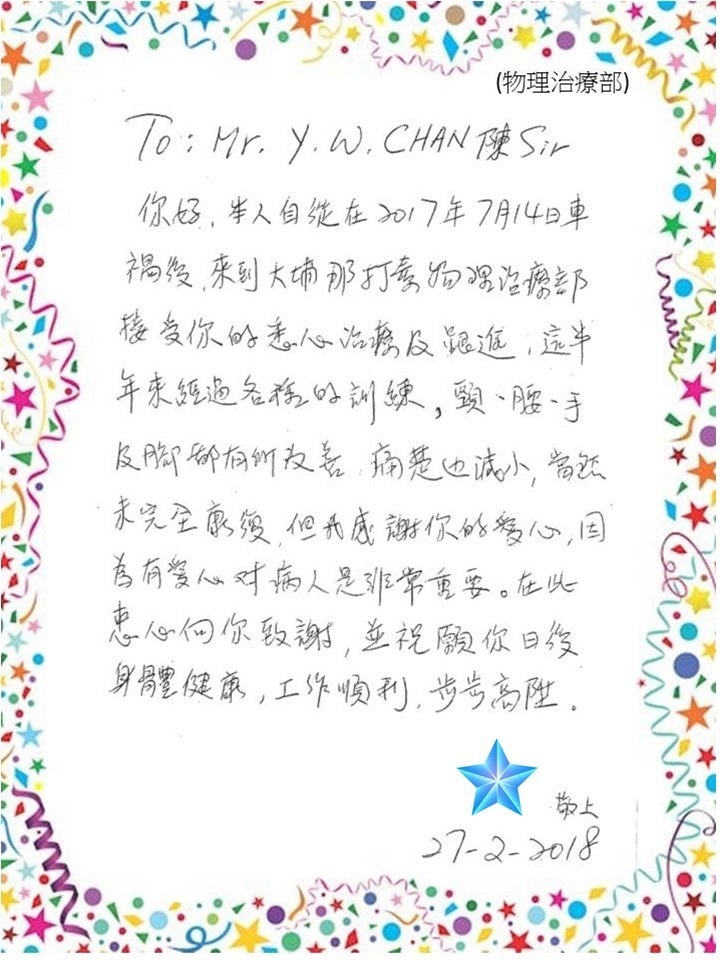 (物理治療部)
To: Mr. Y. W. CHAN 陳Sir
你好,本人自從在2017年7月14日車
禍後,來到大埔那打素物理治療部
接受你的悉心治療及跟進,這半
年來經過各種的訓練,頸、腰、手
及腳都有所改善,痛楚也減小,當然
未完全康復,但我感謝你的愛心,因
為有愛心对病人是非常重要。在此
衷心向你致謝,並祝願你日後
身體健康,工作順利,步步高陞。
敬上
27-2-2018